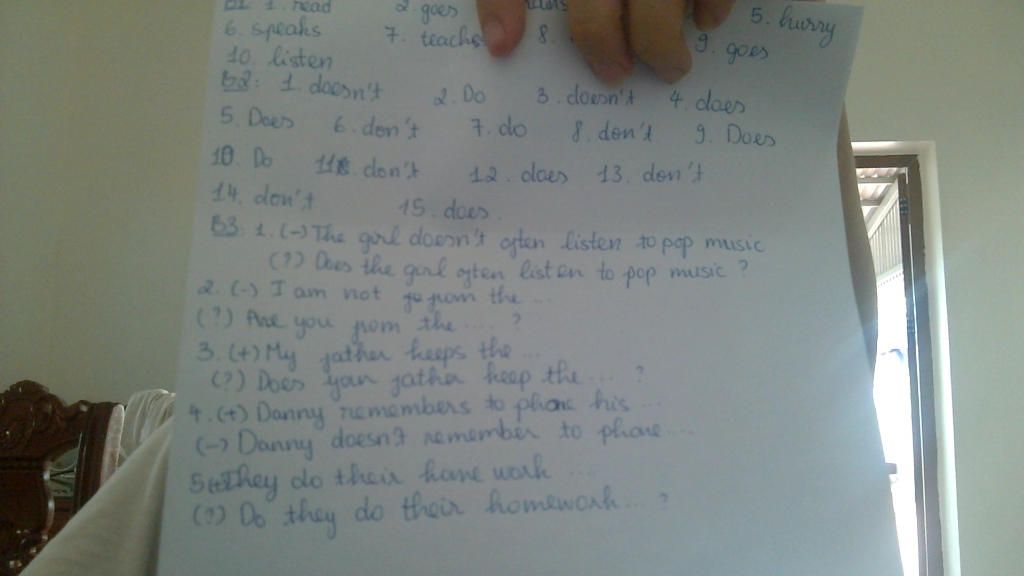 B1 1. read 2. goes 5. hurry
6. speaks 7. teachs 8. 9. goes
10. listen
B2: 1. doesn't 2. Do 3. doesn't 4. does
5. Does 6. don't 7. do 8. don't 9. Does
10. Do 11. don't 12. does 13. don't
14. don't 15. does.
B3: 1. (-) The girl doesn't often listen to pop music
(?) Does the girl often listen to pop music ?
2. (-) I am not from the ...
(?) Are you from the .... ?
3. (+) My father keeps the ...
(?) Does your father keep the ... ?
4. (+) Danny remembers to phone his ...
(-) Danny doesn't remember to phone ....
5 (+) They do their home work ....
(?) Do they do their homework ... ?